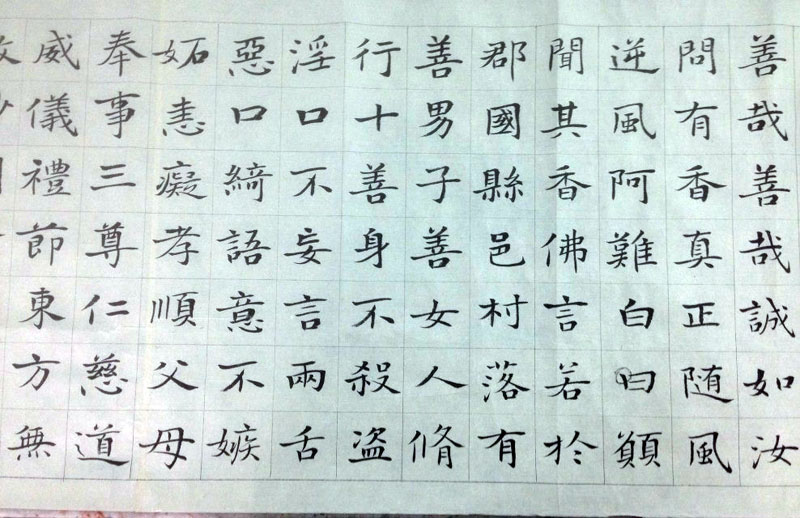 善哉善哉誠如汝
問有香真正随風
逆風阿難白曰願
聞其香佛言若於
郡國縣邑村落有
善男子善女人脩
行十善身不殺盗
淫口不妄言兩舌
惡口綺語意不嫉
妬恚癡孝順父母
奉事三尊仁慈道
威儀禮節東方無